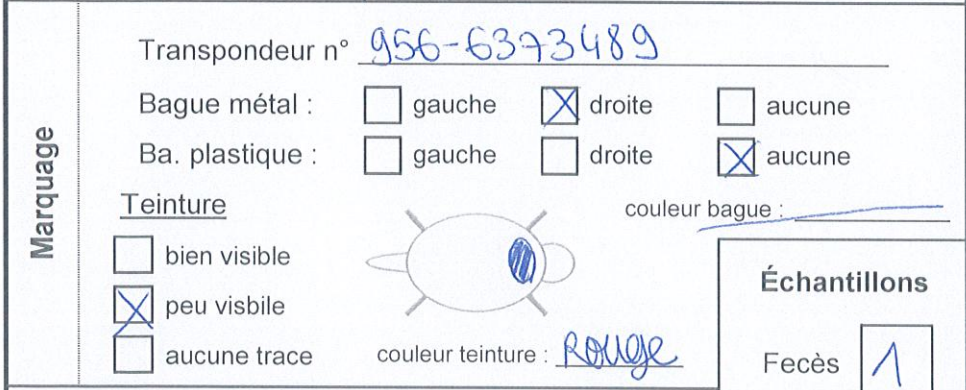 Marquage
Transpondeur n° 956-6373489
Bague métal : gauche droite aucune
Ba. plastique : gauche droite aucune
Teinture
couleur bague :
bien visible
peu visbile
aucune trace
couleur teinture : Rouge
Échantillons
Fecès 1